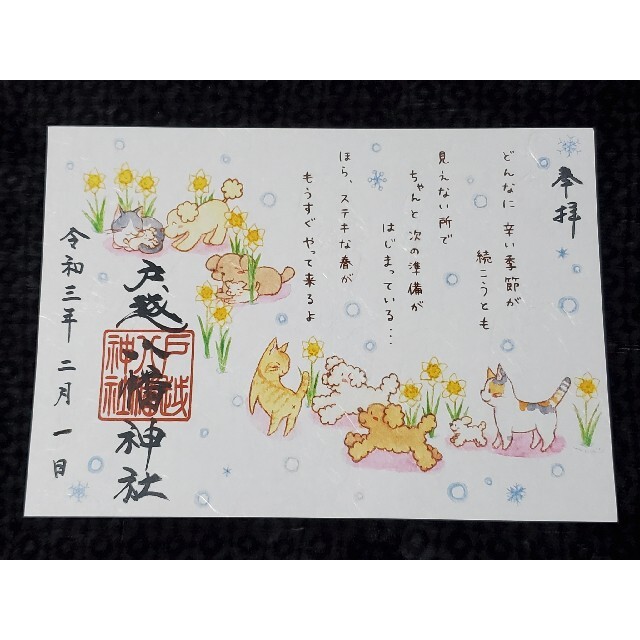 奉拝
どんなに 辛い季節が
続こうとも
見えない所で
ちゃんと次の準備が
はじまっている…
ほら、ステキな春が
もうすぐやって来るよ
戸越八幡神社
戸越
八幡
神社
令和三年 二月 一日